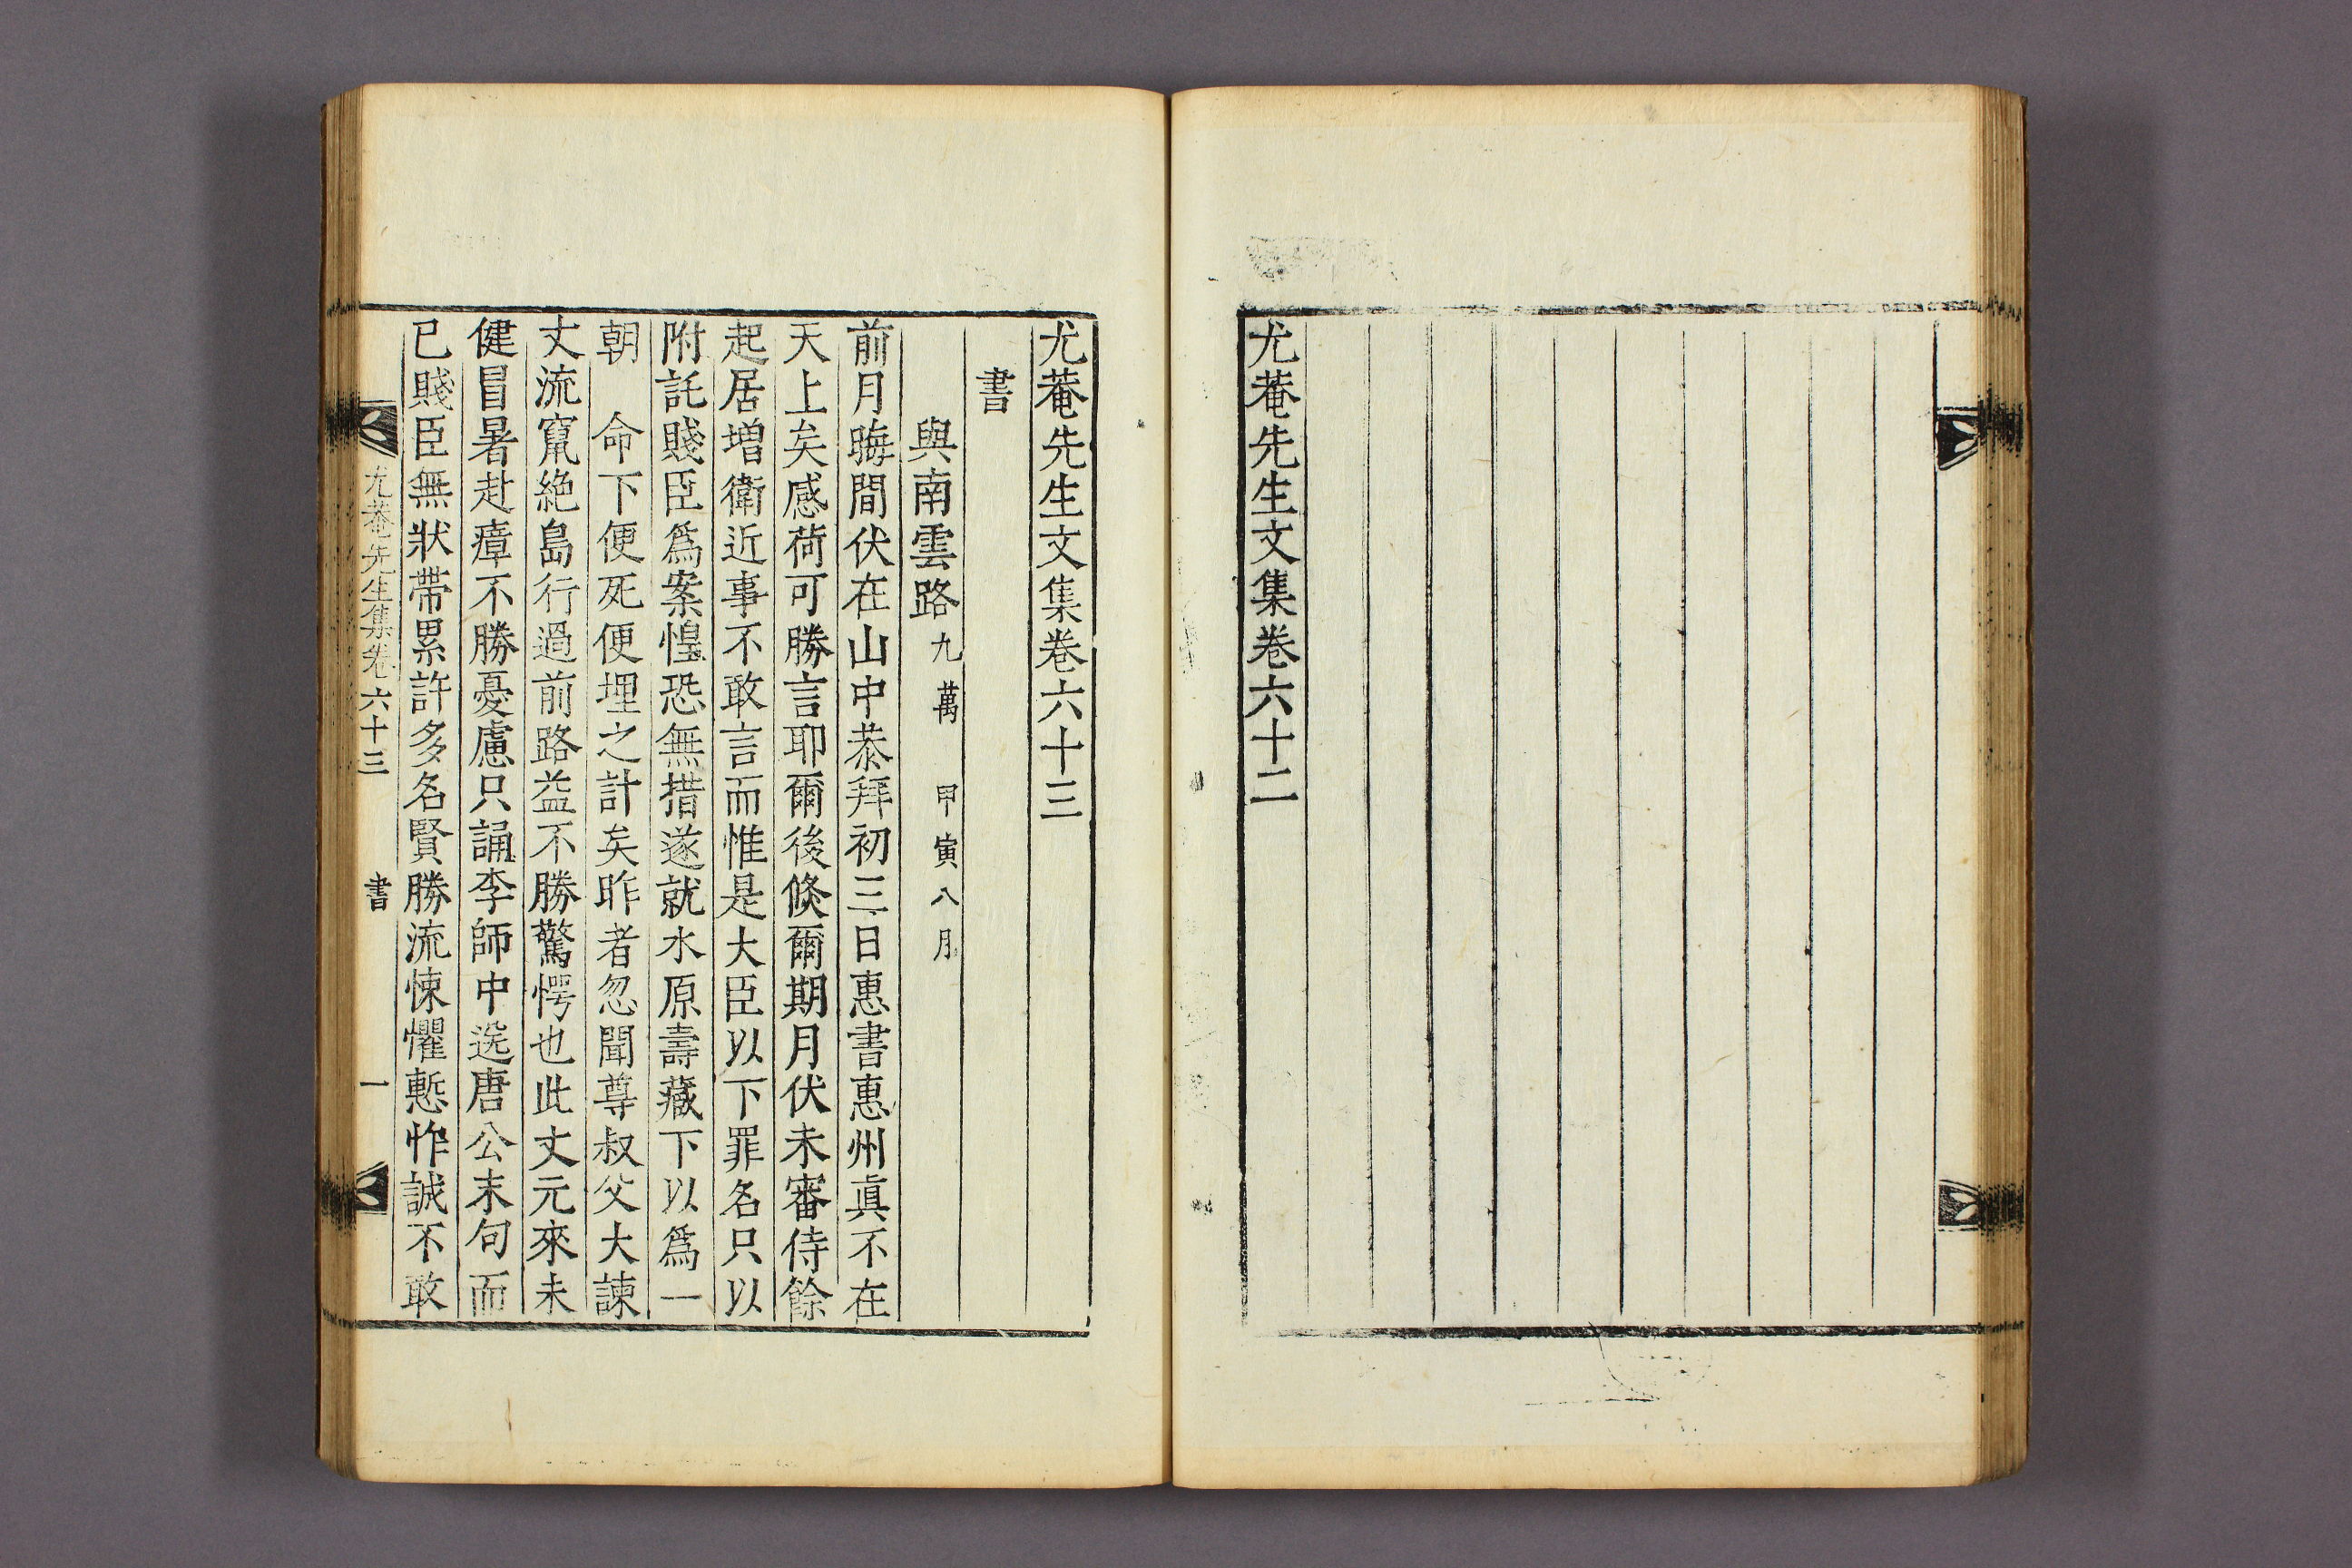 尤菴先生文集卷六十二
尤菴先生文集卷六十三
書
與南雲路九萬 甲寅八月
前月晦間伏在山中恭拜初三日惠書惠州眞不在
天上矣感荷可勝言耶爾後倐爾期月伏未審侍餘
起居增衛近事不敢言而惟是大臣以下罪名只以
附託賤臣爲案惶恐無措遂就水原壽藏下以爲一
朝 命下便死便埋之計矣昨者忽聞尊叔父大諫
丈流竄絶島行過前路益不勝驚愕也此丈元來未
健冒暑赴瘴不勝憂慮只誦李師中送唐公末句而
已賤臣無狀帶累許多名賢勝流悚懼慙怍誠不敢
尤菴先生集卷六十三 書 一